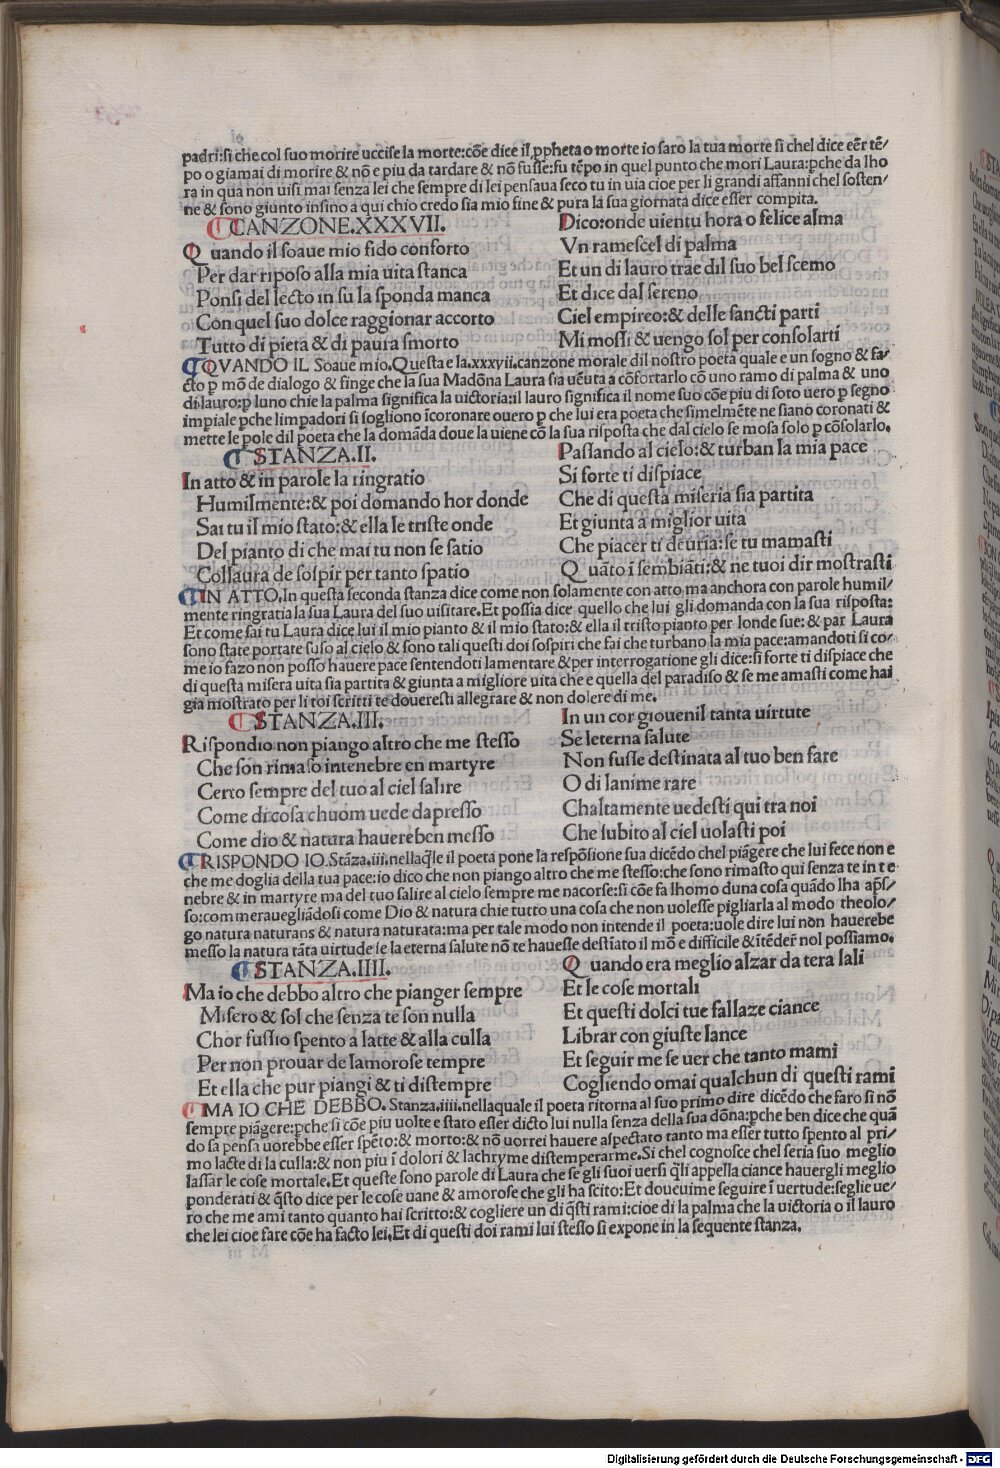 padri:si che col suo morire uccise la morte:cõe dice il ꝓpheta o morte io saro la tua morte si chel dice eēr tē/
po o giamai di morire & nõ e piu da tardare & nõ fusse:fu tēpo in quel punto che mori Laura:pche da lho
ra in qua non uisi mai senza lei che sempre di lei pensaua seco tu in uia cioe per li grandi affanni chel sosten/
ne & sono giunto insino a qui chio credo sia mio fine & pura la sua giornata dice esser compita.
CANZONE.XXXVII.
Quando il soaue mio fido conforto
Per dar riposo alla mia uita stanca
Ponsi del lecto in su la sponda manca
Con quel suo dolce raggionar accorto
Tutto di pieta & di paura smorto
Dico:onde uientu hora o felice alma
Vn ramescel di palma
Et un di lauro trae dil suo bel scemo
Et dice dal sereno
Ciel empireo:& delle sancti parti
Mi mossi & uengo sol per consolarti
QVANDO IL Soaue mio.Questa e la.xxxvii.canzone morale dil nostro poeta quale e un sogno & fa/
cto p mõ de dialogo & finge che la sua Madõna Laura sia uēuta a cõfortarlo cõ uno ramo di palma & uno
di lauro:p luno chie la palma significa la uictoria:il lauro significa il nome suo cõe piu di soto uero p segno
impiale pche limpadori si sogliono ĩcoronare ouero p che lui era poeta che simelmēte ne siano coronati &
mette le pole dil poeta che la domãda doue la uiene cõ la sua risposta che dal cielo se mosa solo p cõsolarlo.
STANZA.II.
In atto & in parole la ringratio
Humilmente:& poi domando hor donde
Sai tu il mio stato:& ella le triste onde
Del pianto di che mai tu non se satio
Collaura de sospir per tanto spatio
Passando al cielo:& turban la mia pace
Si forte ti dispiace
Che di questa miseria sia partita
Et giunta a miglior uita
Che piacer ti deuria:se tu mamasti
Quãto ĩ sembiãti:& ne tuoi dir mostrasti
IN ATTO.In questa seconda stanza dice come non solamente con atto ma anchora con parole humil/
mente ringratia la sua Laura del suo uisitare.Et possia dice quello che lui gli domanda con la sua risposta:
Et come sai tu Laura dice lui il mio pianto & il mio stato:& ella il tristo pianto per londe sue:& par Laura
sono state portate suso al cielo & sono tali questi doi sospiri che fai che turbano la mia pace:amandoti si co/
me io fazo non posso hauere pace sentendoti lamentare & per interrogatione gli dice:si forte ti dispiace che
di questa misera uita sia partita & giunta a migliore uita che e quella del paradiso & se me amasti come hai
gia mostrato per li toi scritti te doueresti allegrare & non dolere di me.
STANZA.III.
Rispondio non piango altro che me stesso
Che son rimaso intenebre en martyre
Certo sempre del tuo al ciel salire
Come di cosa chuom uede dapresso
Come dio & natura hauereben messo
In un cor giouenil tanta uirtute
Se leterna salute
Non fusse destinata al tuo ben fare
O di lanime rare
Chaltamente uedesti qui tra noi
Che subito al ciel uolasti poi
RISPONDO IO.Stãza.iii.nellaq̃le il poeta pone la respõsione sua dicēdo chel piãgere che lui fece non e
che me doglia della tua pace:io dico che non piango altro che me stesso:che sono rimasto qui senza te in te
nebre & in martyre ma del tuo salire al cielo sempre me nacorse:si cõe fa lhomo duna cosa quãdo lha aps̄/
so:commerauegliãdosi come Dio & natura chie tutto una cosa che non uolesse pigliarla al modo theolo/
go natura naturans & natura naturata:ma per tale modo non intende il poeta:uole dire lui non hauerebe
messo la natura tãta uirtude se la eterna salute nõ te hauesse destiato il mõ e difficile & ĩtēder̃ nol possiamo.
STANZA.IIII.
Ma io che debbo altro che pianger sempre
Misero & sol che senza te son nulla
Chor fussio spento a latte & alla culla
Per non prouar de lamorose tempre
Et ella che pur piangi & ti distempre
Quando era meglio alzar da tera lali
Et le cose mortali
Et questi dolci tue fallaze ciance
Librar con giuste lance
Et seguir me se uer che tanto mami
Cogliendo omai qualchun di questi rami
MA IO CHE DEBBO. Stanza.iiii.nellaquale il poeta ritorna al suo primo dire dicēdo che faro si nõ
sempre piãgere:pche si cõe piu uolte e stato esser dicto lui nulla senza della sua dõna:pche ben dice che quã
do sa pensa uorebbe esser spēto:& morto:& nõ uorrei hauere aspectato tanto ma esser tutto spento al pri/
mo lacte di la culla:& non piu ĩ dolori & lachryme distemperarme.Si chel cognosce chel seria suo meglio
lassar le cose mortale.Et queste sono parole di Laura che se gli suoi uersi q̃li appella ciance hauergli meglio
ponderati & q̃sto dice per le cose uane & amorose che gli ha scito:Et doueuime seguire ĩ uertude:seglie ue/
ro che me ami tanto quanto hai scritto:& cogliere un di q̃sti rami:cioe di la palma che la uictoria o il lauro
che lei cioe fare cõe ha facto lei.Et di questi doi rami lui stesso si expone in la sequente stanza.
Digitalisierung gefördert durch die Deutsche Forschungsgemeinschaft - DFG